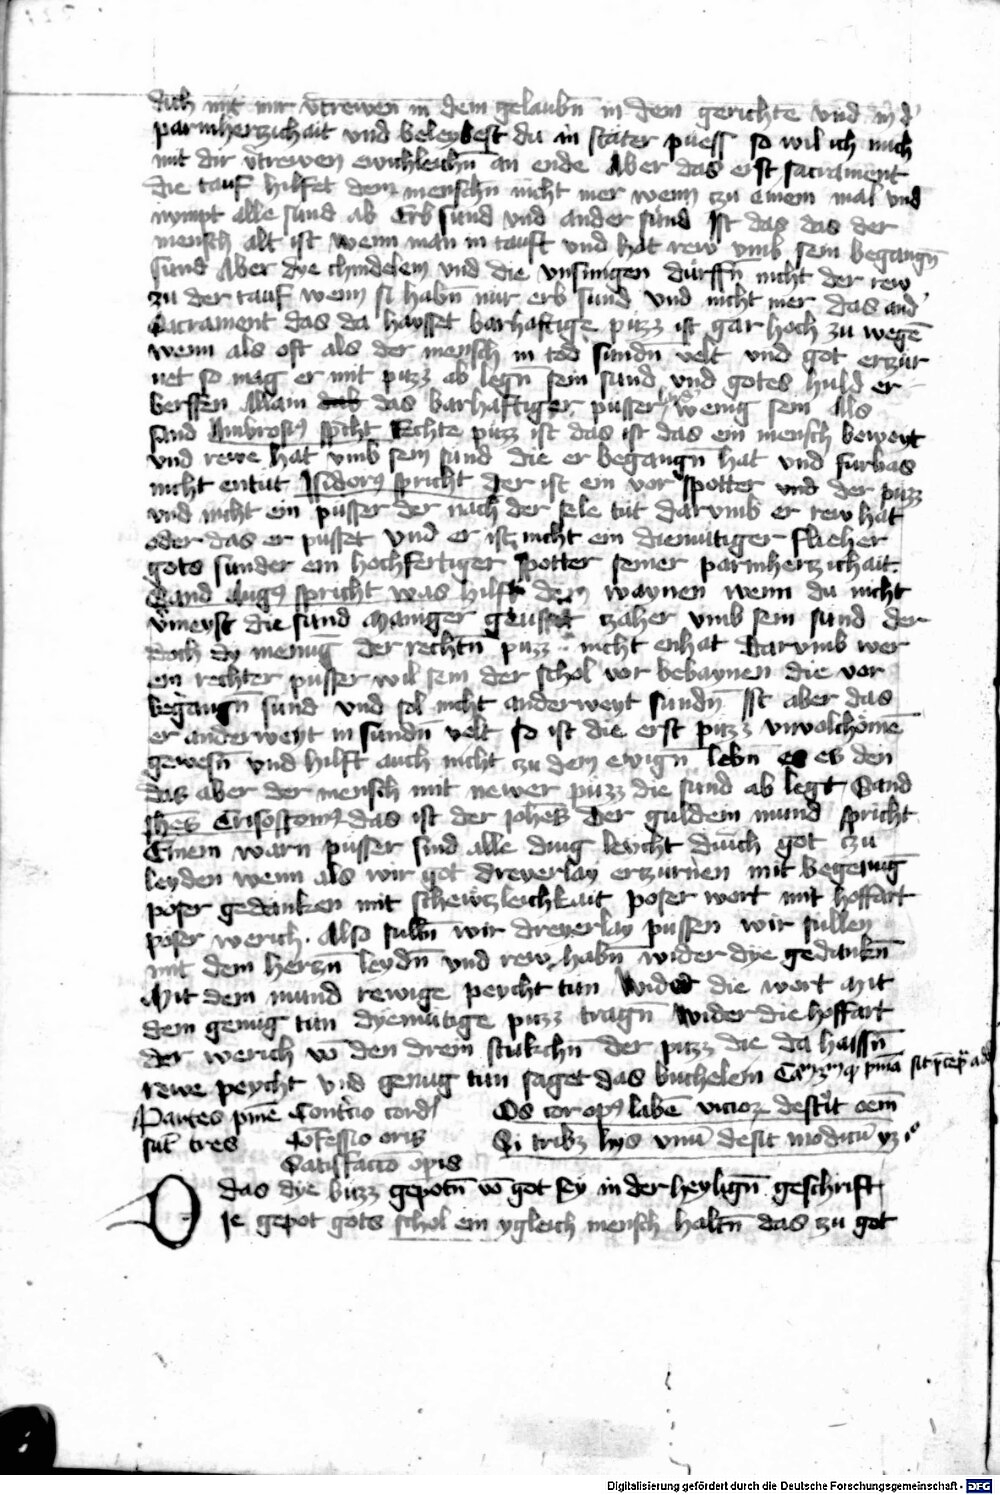 dich mit mir v̄trewen in dem gelaubn̄ in dem gerichte vnd in d'
parmherczichait vnd beleybest du in stäter puess so wil ich mich
mit dir v̄trewen ewichleichn̄ an ende Aber das erst sacrament
die tauf hilfet dem menschn̄ nicht mer wenn czu einem mal vnd
nympt alle sund ab Erb sund vnd ander sund Ist das das der
mensch alt ist wenn man in tauft vnd hat rew vmb sein begangn̄
sund Aber dye chindelein vnd die vnsinnigen dürffn̄ nicht der rew
zu der tauf wenn si habn̄ nür erb sund vnd nicht mer das and'
Sacrament das da haysset barhaftige puzz ist gar hoch zu wegē
wenn als oft als der mensch in tod sundn̄ velt vnd got erzür
net so mag er mit puzz ab legn̄ sein sund vnd gotes huld er
berffen Allain das barhaftiger pusser wenig sein Als
sand Ambrosi9 sp̄cht Rechte puzz ist das ist das ein mensch beweyt
vnd rewe hat vmb sein sund die er begangn̄ hat vnd furbas
nicht entut Isidor9 spricht der ist ein vor spotter vnd der puzz
vnd nicht ein pusser der nach der sele tut darvmb er rew hat
oder das er pusset vnd er ist nicht ein diemütiger flieher
gots sunder ein hochfertiger spotter seiner parmherczichait
Sand Aug9 spricht was hilft dem waynen wenn du nicht
v̄meyst die sund Maniger geusset czäher vmb sein sund der
doch dy menūg der rechtn̄ puzz nicht enhat Darvmb wer
ein rechter pusser wil sein der schol vor bebaynen die vor
begangn̄ sund vnd sol nicht anderweyt sundn̄ Ist aber das
er anderweyt in sundn̄ velt so ist die erst puzz vnvolchömē
gewesn̄ vnd hilft auch nicht czu dem ewign̄ lebn̄ es es den
das aber der mensch mit newer püzz die sund ab legt Sand
Ihes Crisostom9 das ist der Johēs der guldein mund spricht
Einem warn pusser sind alle ding leycht durch got czu
leyden wenn als wir got dreyerlay erzürnen mit begerūg
poser gedanken mit schewczleichkait poser wort mit hoffart
poser werich Also sulln̄ wir dreyerlay pussen wir sullen
mit dem herczn̄ leydn̄ vnd rew habn̄ wider dye gedankn̄
Mit dem mund rewige peycht tun wider die wort Mit
dem genug tun dyemutige puzz tragn̄ wider die hoffart
der werich vō den drein stukchn̄ der puzz die da haissn̄
rewe peycht vnd genug tun saget das buchelein
Partes pnīe Contric̄io cordis Os cor op9 labē vicioz destruit oem̄
sūt tres Cōfessio oris Si tribz hiis vnū desit modicū
Satisfaccio opis
das dye buzz gepotn̄ vō got sey in der heylign̄ geschrift
Die gepot gots schol ein ygleich mensch haltn̄ das zu got
Digitalisierung gefördert durch die Deutsche Forschungsgemeinschaft - DFG